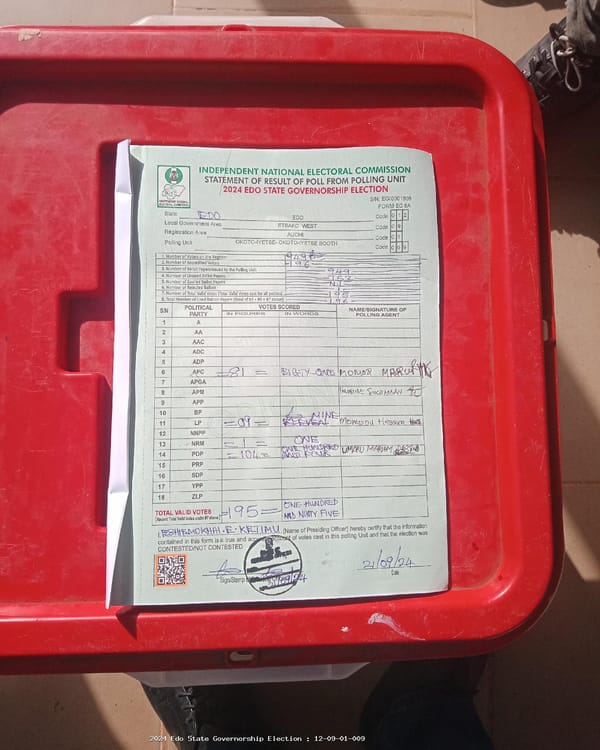 INDEPENDENT NATIONAL ELECTORAL COMMISSION
STATEMENT OF RESULT OF POLL FROM POLLING UNIT
2024 EDO STATE GOVERNORSHIP ELECTION
FORM EC 8A
State EDO EDO Code 012
Local Government Area ETSAKO WEST Code 09
Registration Area AUCHI Code 01
Polling Unit OKOTO-IYETSE- OKOTO-IYETSE BOOTH Code 009
1. Number of Voters on the Register 949
2. Number of Accredited Voters 196
3. Number of Ballot Papers Issued to the Polling Unit 949
4. Number of Unused Ballot Papers
5. Number of Spoiled Ballot Papers
6. Number of Rejected Ballots
7. Number of Total Valid Votes (Total Valid Votes cast for all parties) 195
8. Total Number of Used Ballot Papers 196
SN POLITICAL PARTY VOTES SCORED IN FIGURES IN WORDS NAME/SIGNATURE OF POLLING AGENT
1 A
2 AA
3 AAC
4 ADC
5 ADP
6 APC =81= EIGTY ONE MOMOH
7 APGA
8 APM
9 APP
10 BP
11 LP =09= NINE
12 NNPP
13 NRM =1= ONE
14 PDP =104= ONE HUNDRED AND FOUR UMARU
15 PRP
16 SDP
17 YPP
18 ZLP
TOTAL VALID VOTES =195= ONE HUNDRED AND NINTY FIVE
(Name of Presiding Officer) hereby certify that the information
contained in this form is a true and account of votes cast in this polling Unit and that the election was
CONTESTED/NOT CONTESTED
21/09/24
Date
2024 Edo State Governorship Election : 12-09-01-009